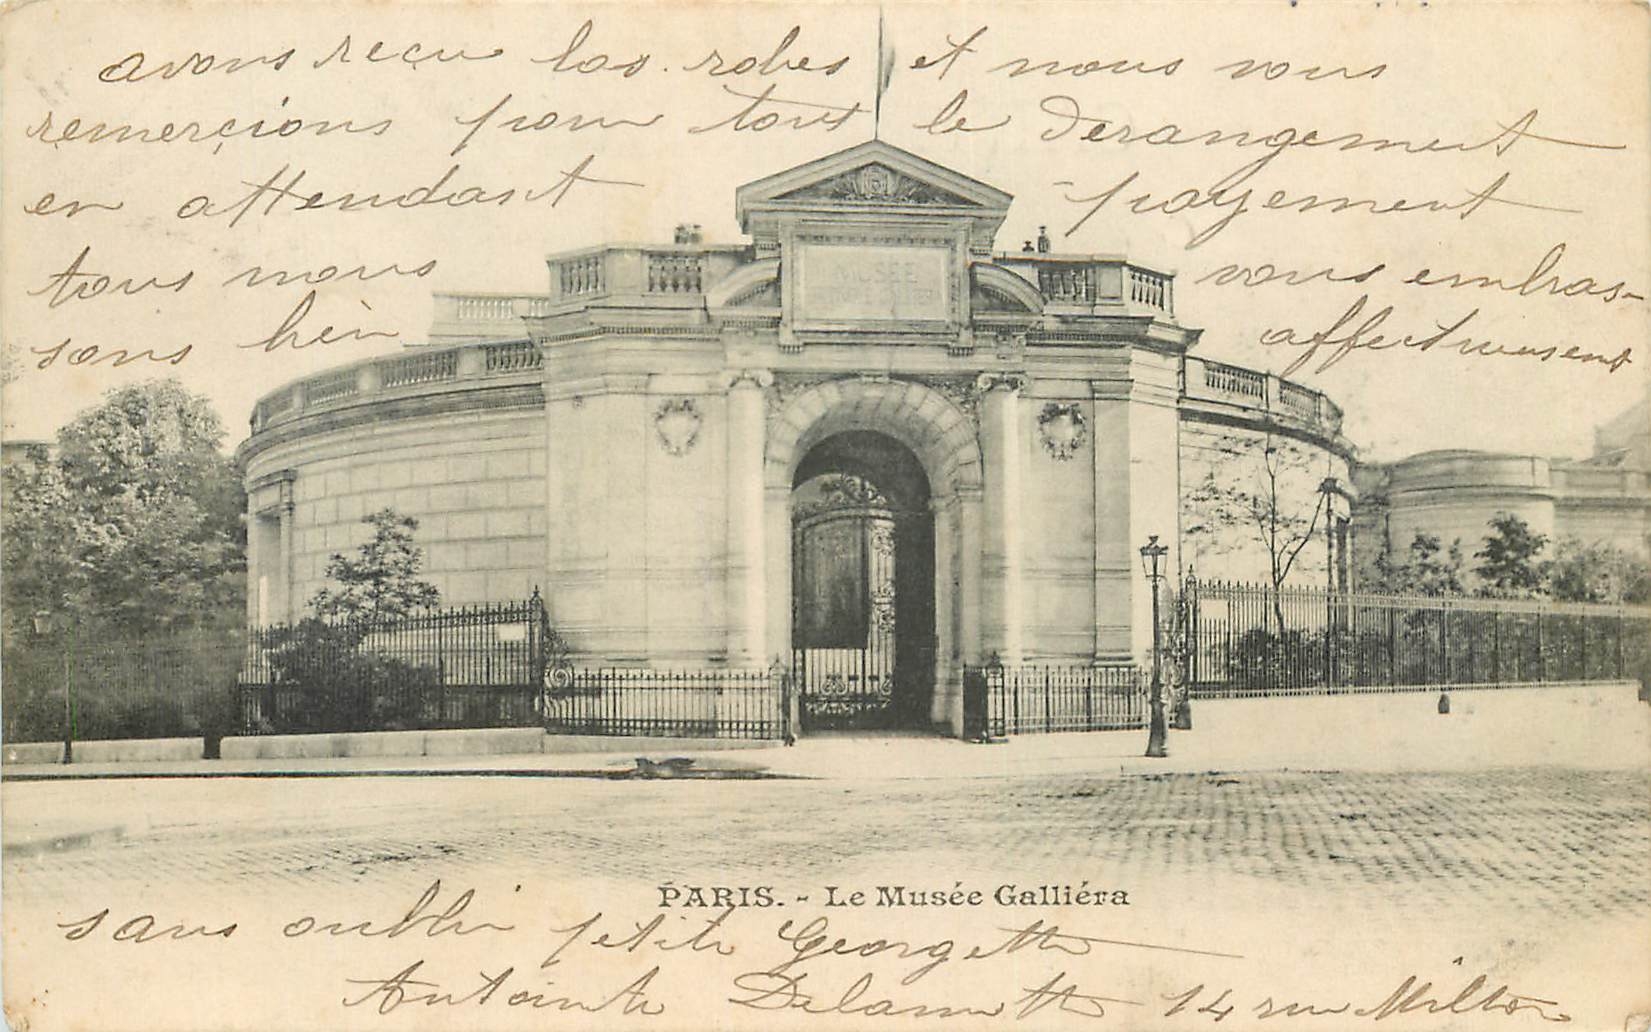 avons reçu las robes et nous vous
remerçions pour tout le derangement
en attendant payement
tous nous vous embras-
sons bien affectueusement
MUSÉE
PARIS. - Le Musée Galliéra
sans oublier petite Georgette
Antoinette 14 rue Milton